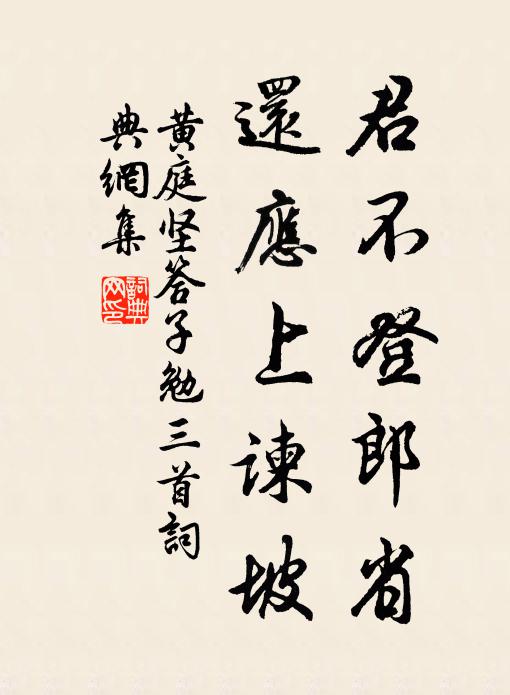 君不登郎省
還應上諫坡
黃庭坚答子勉三首詞
典網集
詞典
网印